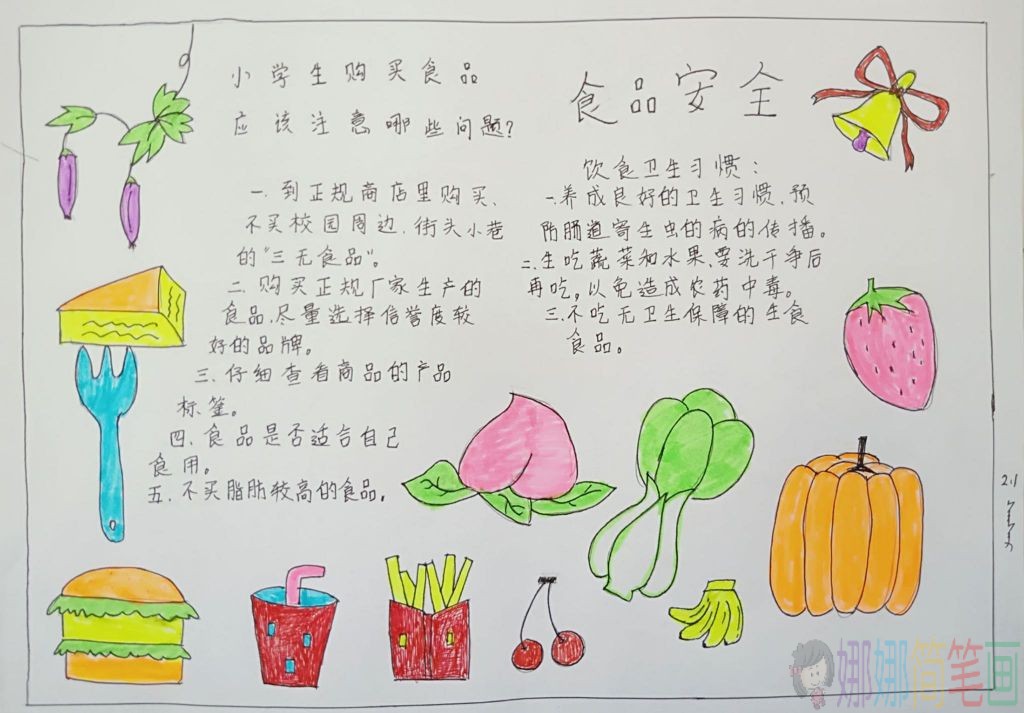 食品安全
小学生购买食品
应该注意哪些问题?
一.到正规商店里购买、
不买校园周边.街头小巷
的“三无食品”。
二.购买正规厂家生产的
食品.尽量选择信誉度较
好的品牌。
三.仔细查看商品的产品
标签。
四.食品是否适合自己
食用。
五.不买脂肪较高的食品。
饮食卫生习惯:
一.养成良好的卫生习惯,预
防肠道寄生虫的病的传播。
二.生吃蔬菜和水果、要洗干净后
再吃,以免造成农药中毒。
三.不吃无卫生保障的生食
食品。
娜娜简笔画